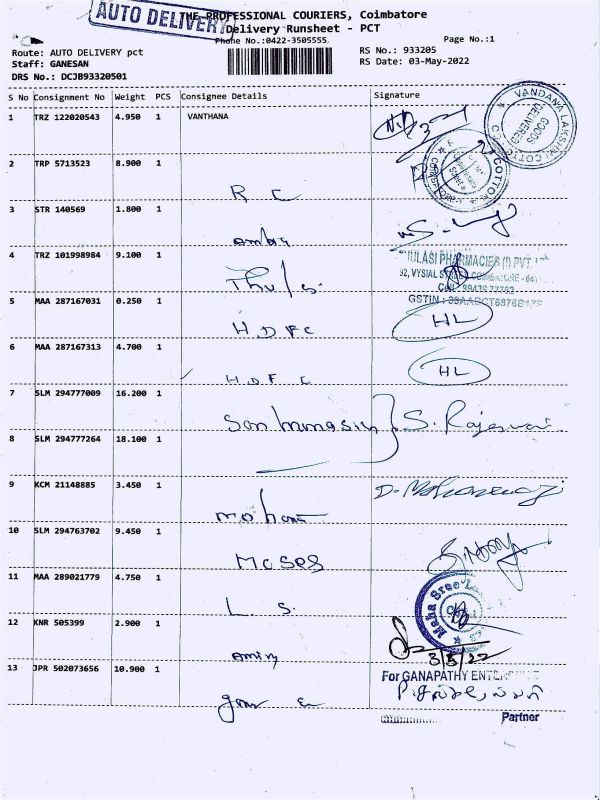 AUTO DELIVERY
THE PROFESSIONAL COURIERS, Coimbatore
Delivery Runsheet - PCT
Phone No.:0422-3505555
Page No.:1
Route: AUTO DELIVERY pct
RS No.: 933205
Staff: GANESAN
RS Date: 03-May-2022
DRS No.: DCJB93320501
S No Consignment No Weight PCS Consignee Details Signature
1 TRZ 122020543 4.950 1 VANTHANA
VANDANA LAKSHMI COTTON
GOODS DELIVERED
2 TRP 5713523 8.900 1
R C
3 STR 140569 1.800 1
4 TRZ 101998984 9.100 1
TULASI PHARMACIES (I) PVT
92, VYSIAL
COIMBATORE - 641
5 MAA 287167031 0.250 1
HDFC HL
6 MAA 287167313 4.700 1
HDFC HL
7 SLM 294777009 16.200 1
S. Rajeswari
8 SLM 294777264 18.100 1
9 KCM 21148885 3.450 1
10 SLM 294763702 9.450 1
Moses
11 MAA 289021779 4.750 1
L S.
Maha Sree
12 KNR 505399 2.900 1
3/5/22
13 JPR 502073656 10.900 1
For GANAPATHY
Partner